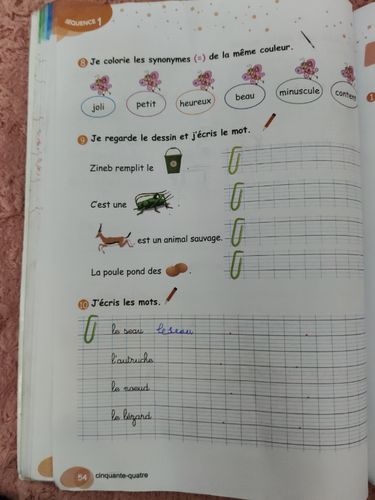 SEQUENCE 1
8 Je colorie les synonymes (=) de la même couleur.
joli petit heureux beau minuscule content
9 Je regarde le dessin et j'écris le mot.
Zineb remplit le .
C'est une .
est un animal sauvage.
La poule pond des .
10 J'écris les mots.
le seau le seau
l'autruche
le nœud
le lézard
54 cinquante-quatre